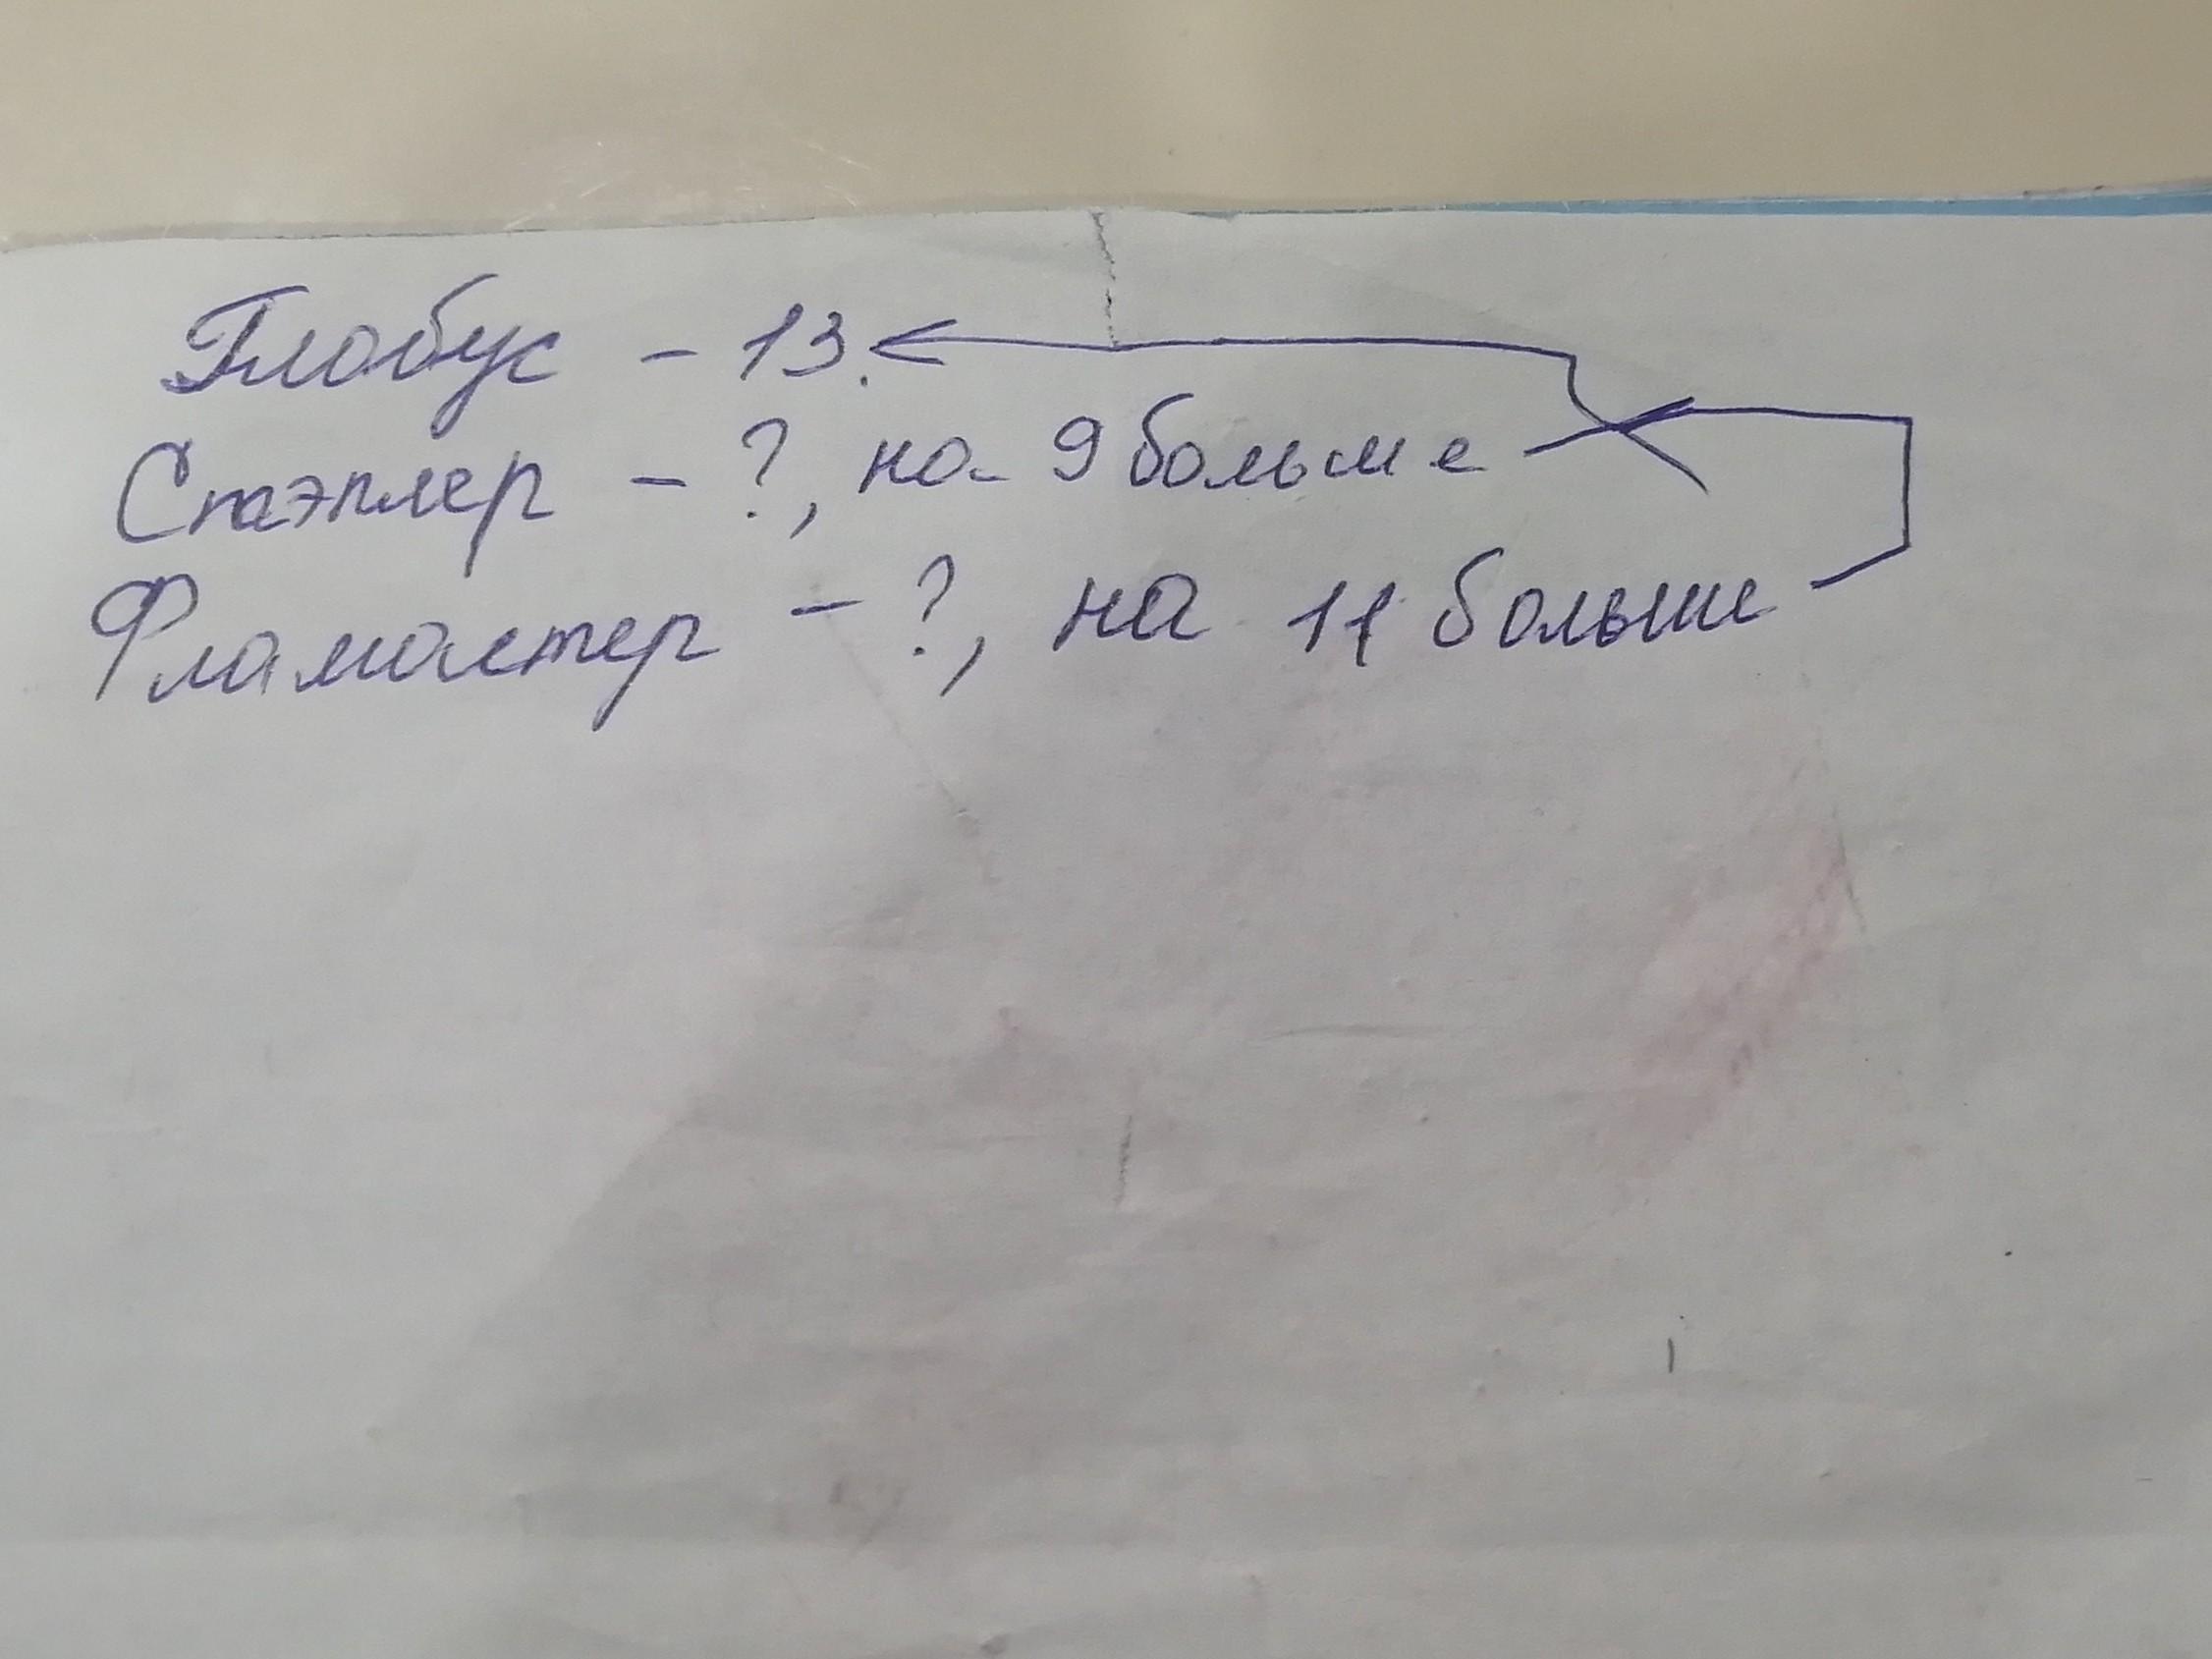 Глобус - 13.
Стэплер - ?, на 9 больше
Фламастер - ?, на 11 больше